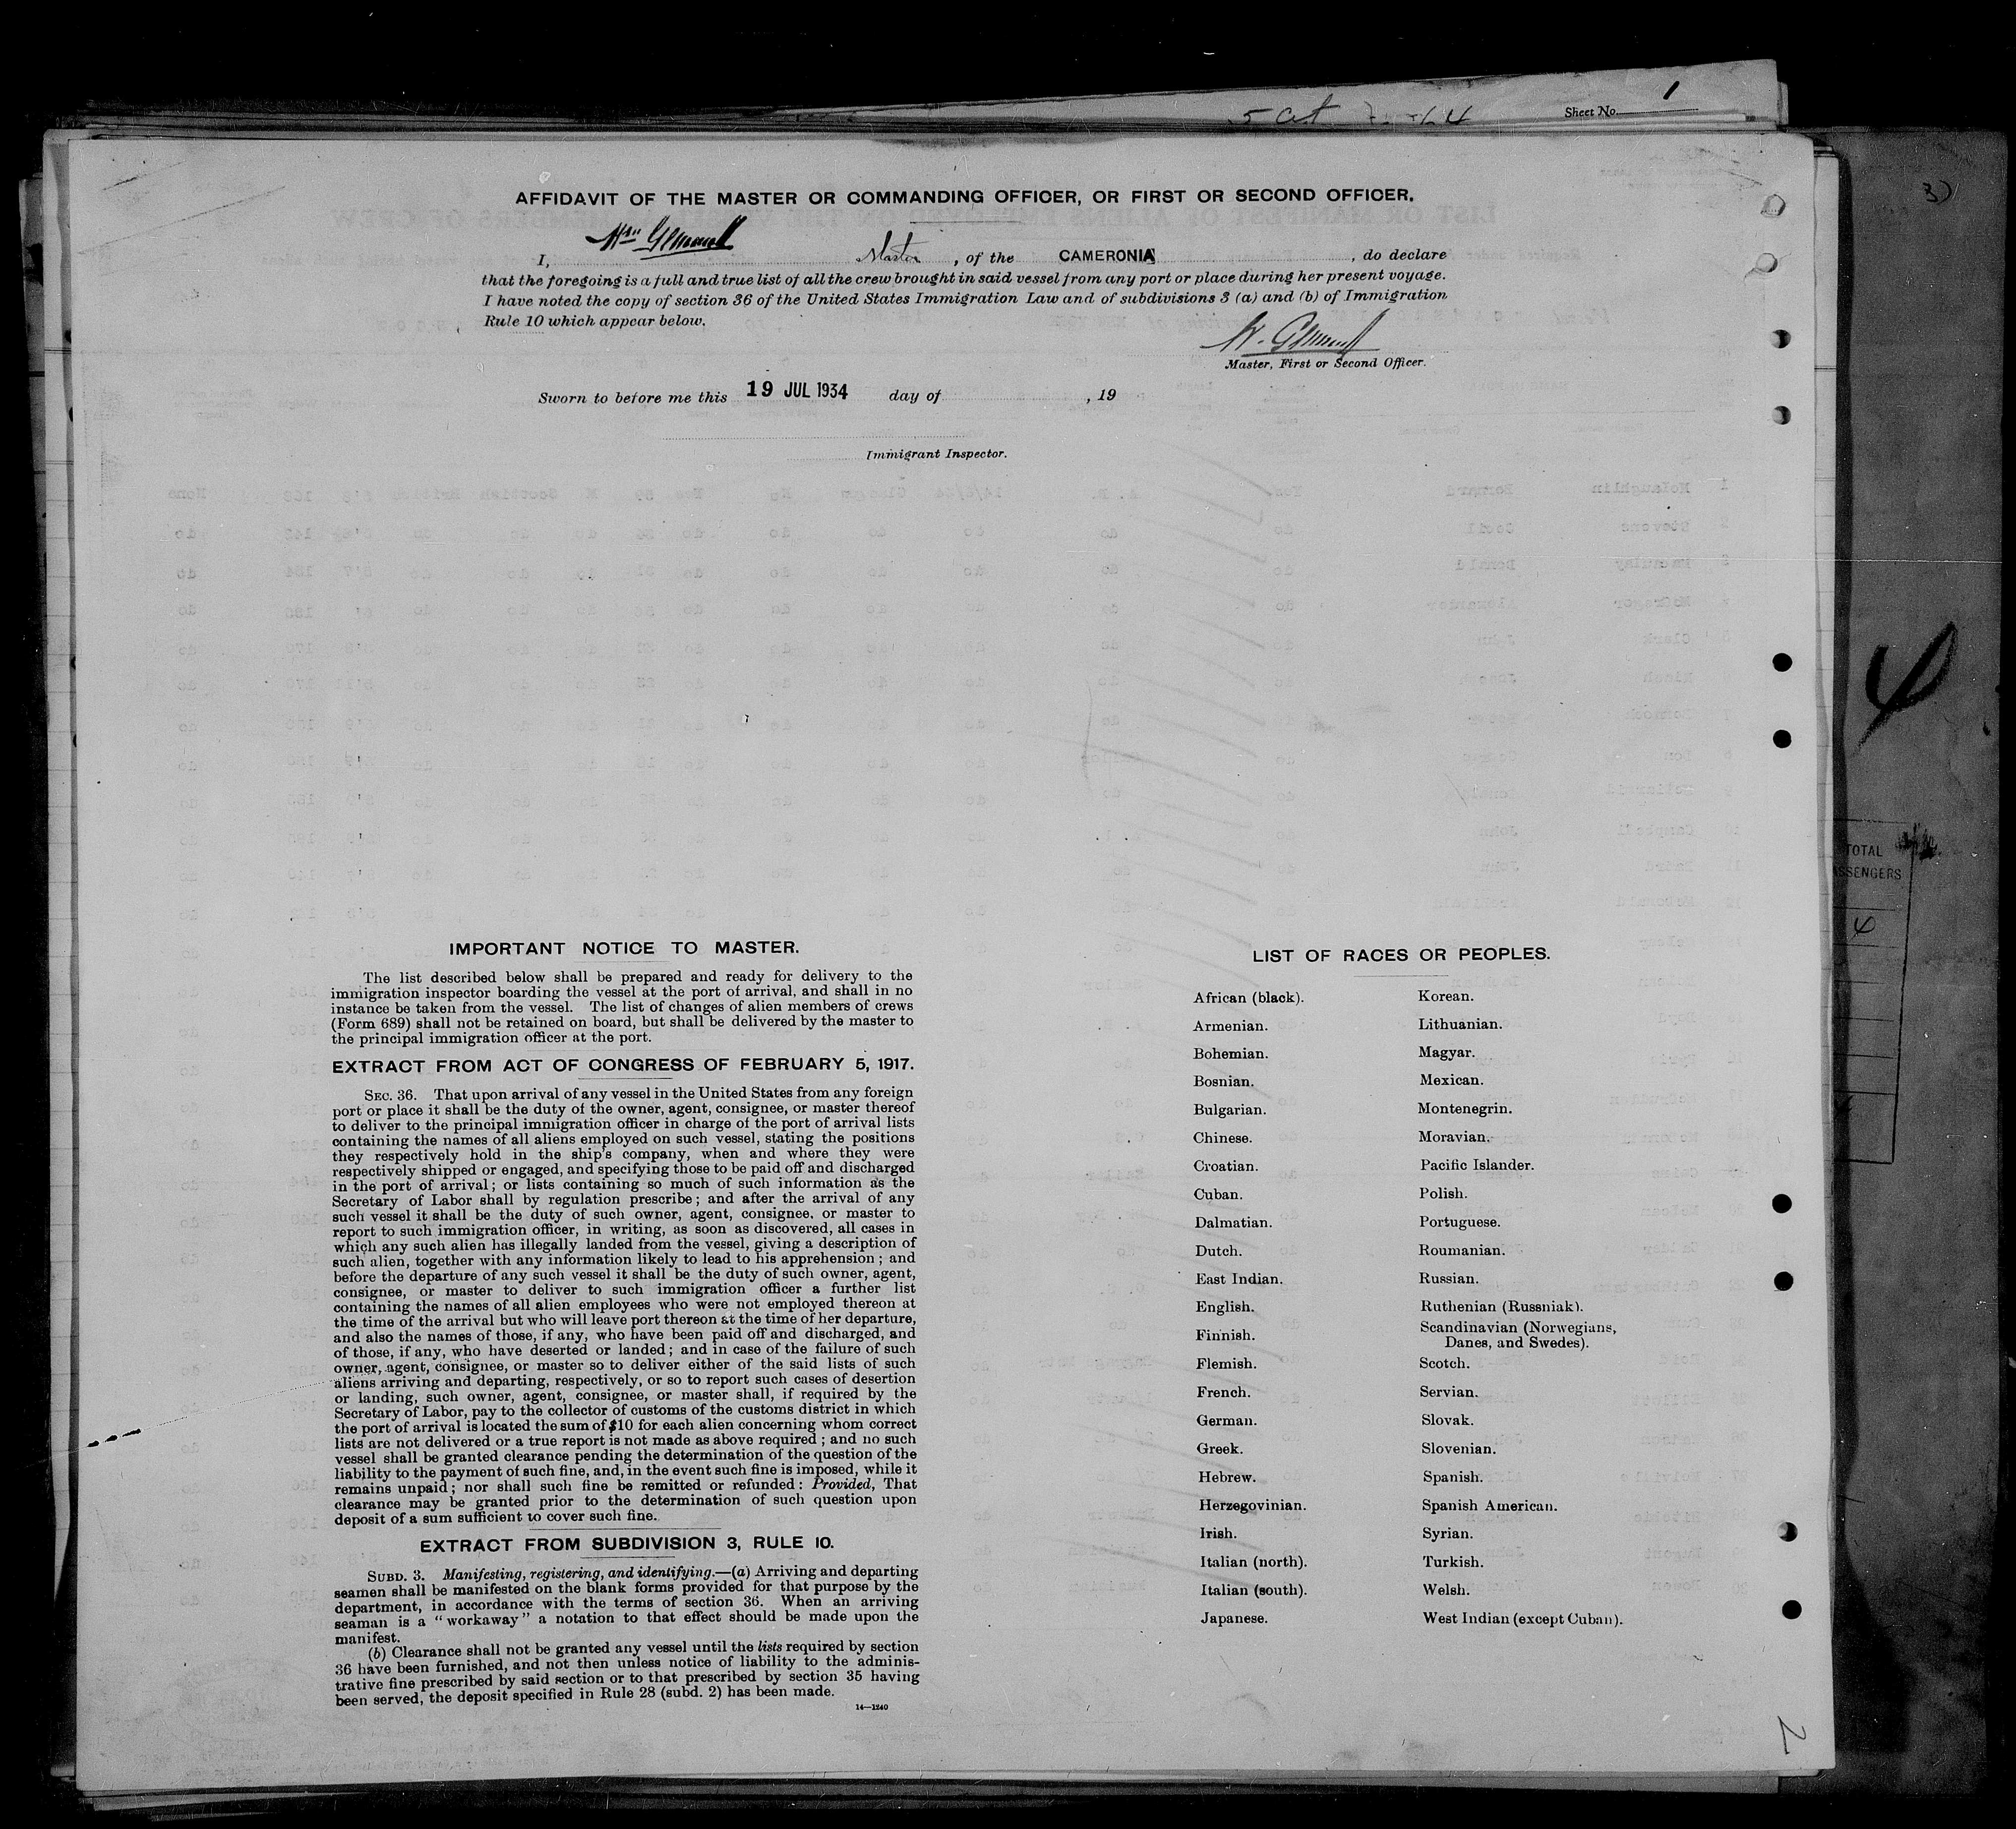 Sheet No. 1
AFFIDAVIT OF THE MASTER OR COMMANDING OFFICER, OR FIRST OR SECOND OFFICER.
I, Master, of the CAMERONIA, do declare
that the foregoing is a full and true list of all the crew brought in said vessel from any port or place during her present voyage.
I have noted the copy of section 36 of the United States Immigration Law and of subdivisions 3 (a) and (b) of Immigration
Rule 10 which appear below.
Master, First or Second Officer.
Sworn to before me this 19 JUL 1934 day of , 19
Immigrant Inspector.
4
TOTAL
4
IMPORTANT NOTICE TO MASTER.
The list described below shall be prepared and ready for delivery to the
immigration inspector boarding the vessel at the port of arrival, and shall in no
instance be taken from the vessel. The list of changes of alien members of crews
(Form 689) shall not be retained on board, but shall be delivered by the master to
the principal immigration officer at the port.
EXTRACT FROM ACT OF CONGRESS OF FEBRUARY 5, 1917.
SEC. 36. That upon arrival of any vessel in the United States from any foreign
port or place it shall be the duty of the owner, agent, consignee, or master thereof
to deliver to the principal immigration officer in charge of the port of arrival lists
containing the names of all aliens employed on such vessel, stating the positions
they respectively hold in the ship's company, when and where they were
respectively shipped or engaged, and specifying those to be paid off and discharged
in the port of arrival; or lists containing so much of such information as the
Secretary of Labor shall by regulation prescribe; and after the arrival of any
such vessel it shall be the duty of such owner, agent, consignee, or master to
report to such immigration officer, in writing, as soon as discovered, all cases in
which any such alien has illegally landed from the vessel, giving a description of
such alien, together with any information likely to lead to his apprehension; and
before the departure of any such vessel it shall be the duty of such owner, agent,
consignee, or master to deliver to such immigration officer a further list
containing the names of all alien employees who were not employed thereon at
the time of the arrival but who will leave port thereon at the time of her departure,
and also the names of those, if any, who have been paid off and discharged, and
of those, if any, who have deserted or landed; and in case of the failure of such
owner, agent, consignee, or master so to deliver either of the said lists of such
aliens arriving and departing, respectively, or so to report such cases of desertion
or landing, such owner, agent, consignee, or master shall, if required by the
Secretary of Labor, pay to the collector of customs of the customs district in which
the port of arrival is located the sum of $10 for each alien concerning whom correct
lists are not delivered or a true report is not made as above required; and no such
vessel shall be granted clearance pending the determination of the question of the
liability to the payment of such fine, and, in the event such fine is imposed, while it
remains unpaid; nor shall such fine be remitted or refunded: Provided, That
clearance may be granted prior to the determination of such question upon
deposit of a sum sufficient to cover such fine.
EXTRACT FROM SUBDIVISION 3, RULE 10.
SUBD. 3. Manifesting, registering, and identifying.—(a) Arriving and departing
seamen shall be manifested on the blank forms provided for that purpose by the
department, in accordance with the terms of section 36. When an arriving
seaman is a "workaway" a notation to that effect should be made upon the
manifest.
(b) Clearance shall not be granted any vessel until the lists required by section
36 have been furnished, and not then unless notice of liability to the adminis-
trative fine prescribed by said section or to that prescribed by section 35 having
been served, the deposit specified in Rule 28 (subd. 2) has been made.
14—1240
LIST OF RACES OR PEOPLES.
African (black).
Armenian.
Bohemian.
Bosnian.
Bulgarian.
Chinese.
Croatian.
Cuban.
Dalmatian.
Dutch.
East Indian.
English.
Finnish.
Flemish.
French.
German.
Greek.
Hebrew.
Herzegovinian.
Irish.
Italian (north).
Italian (south).
Japanese.
Korean.
Lithuanian.
Magyar.
Mexican.
Montenegrin.
Moravian.
Pacific Islander.
Polish.
Portuguese.
Roumanian.
Russian.
Ruthenian (Russniak).
Scandinavian (Norwegians,
Danes, and Swedes).
Scotch.
Servian.
Slovak.
Slovenian.
Spanish.
Spanish American.
Syrian.
Turkish.
Welsh.
West Indian (except Cuban).
2